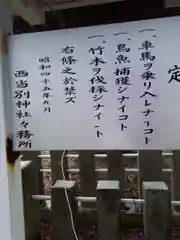 定
一、車馬ヲ乗リ入レナイコト
一、鳥魚捕獲シナイコト
一、竹木ヲ伐採シナイコト
右條之於禁ズ
昭和四十五年九月
西当別神社々務所